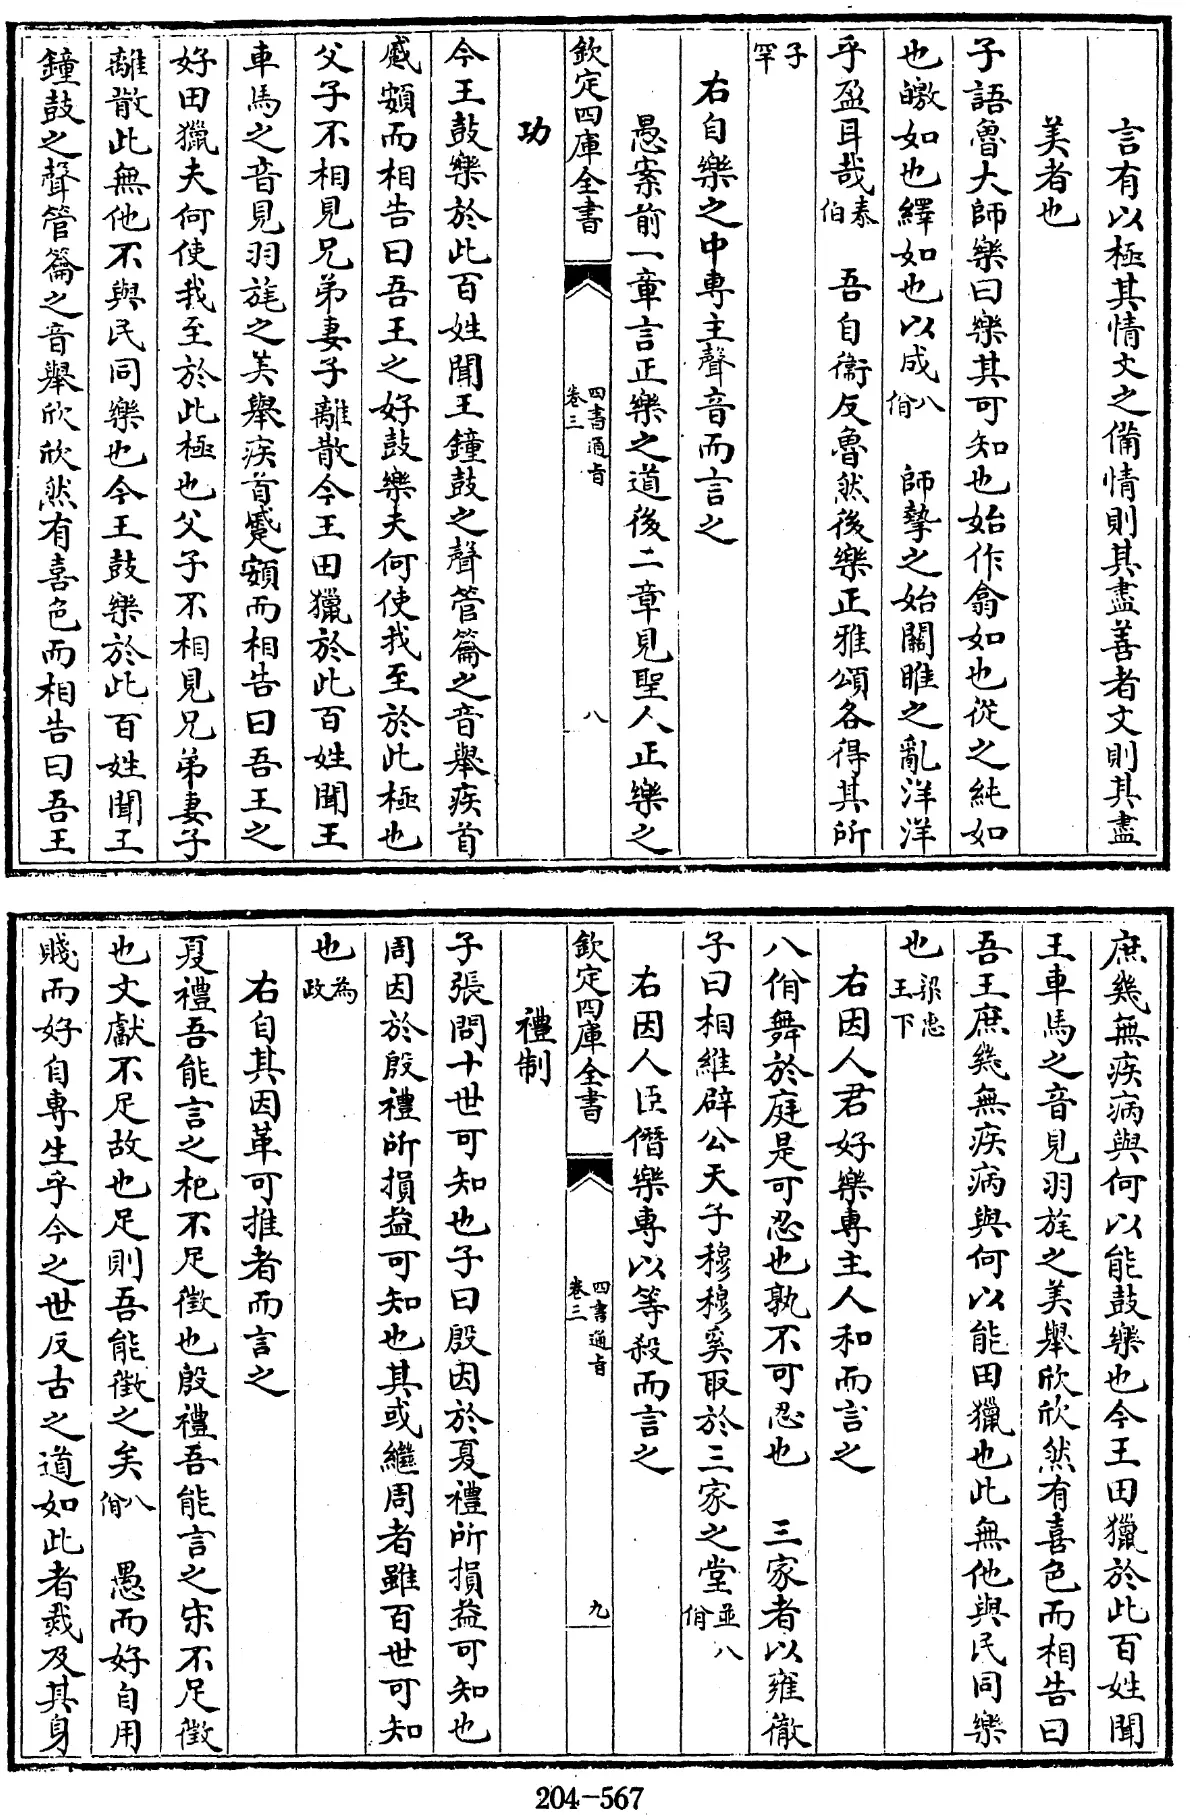 言有以極其情文之備情則其盡善者文則其盡
美者也
子語魯大師樂曰樂其可知也始作翕如也從之純如
也皦如也繹如也以成八佾　師摯之始關雎之亂洋洋
乎盈耳哉泰伯　吾自衛反魯然後樂正雅頌各得其所
子罕
右自樂之中專主聲音而言之
愚案前一章言正樂之道後二章見聖人正樂之
欽定四庫全書　四書通旨卷三　八
功
今王鼓樂於此百姓聞王鐘鼓之聲管籥之音舉疾首
蹙頞而相告曰吾王之好鼓樂夫何使我至於此極也
父子不相見兄弟妻子離散今王田獵於此百姓聞王
車馬之音見羽旄之美舉疾首蹙頞而相告曰吾王之
好田獵夫何使我至於此極也父子不相見兄弟妻子
離散此無他不與民同樂也今王鼓樂於此百姓聞王
鐘鼓之聲管籥之音舉欣欣然有喜色而相告曰吾王
庶幾無疾病與何以能鼓樂也今王田獵於此百姓聞
王車馬之音見羽旄之美舉欣欣然有喜色而相告曰
吾王庶幾無疾病與何以能田獵也此無他與民同樂
也梁惠王下
右因人君好樂專主人和而言之
八佾舞於庭是可忍也孰不可忍也　三家者以雍徹
子曰相維辟公天子穆穆奚取於三家之堂並八佾
右因人臣僭樂專以等殺而言之
欽定四庫全書　四書通旨卷三　九
禮制
子張問十世可知也子曰殷因於夏禮所損益可知也
周因於殷禮所損益可知也其或繼周者雖百世可知
也為政
右自其因革可推者而言之
夏禮吾能言之杞不足徵也殷禮吾能言之宋不足徵
也文獻不足故也足則吾能徵之矣八佾　愚而好自用
賤而好自專生乎今之世反古之道如此者烖及其身
204-567